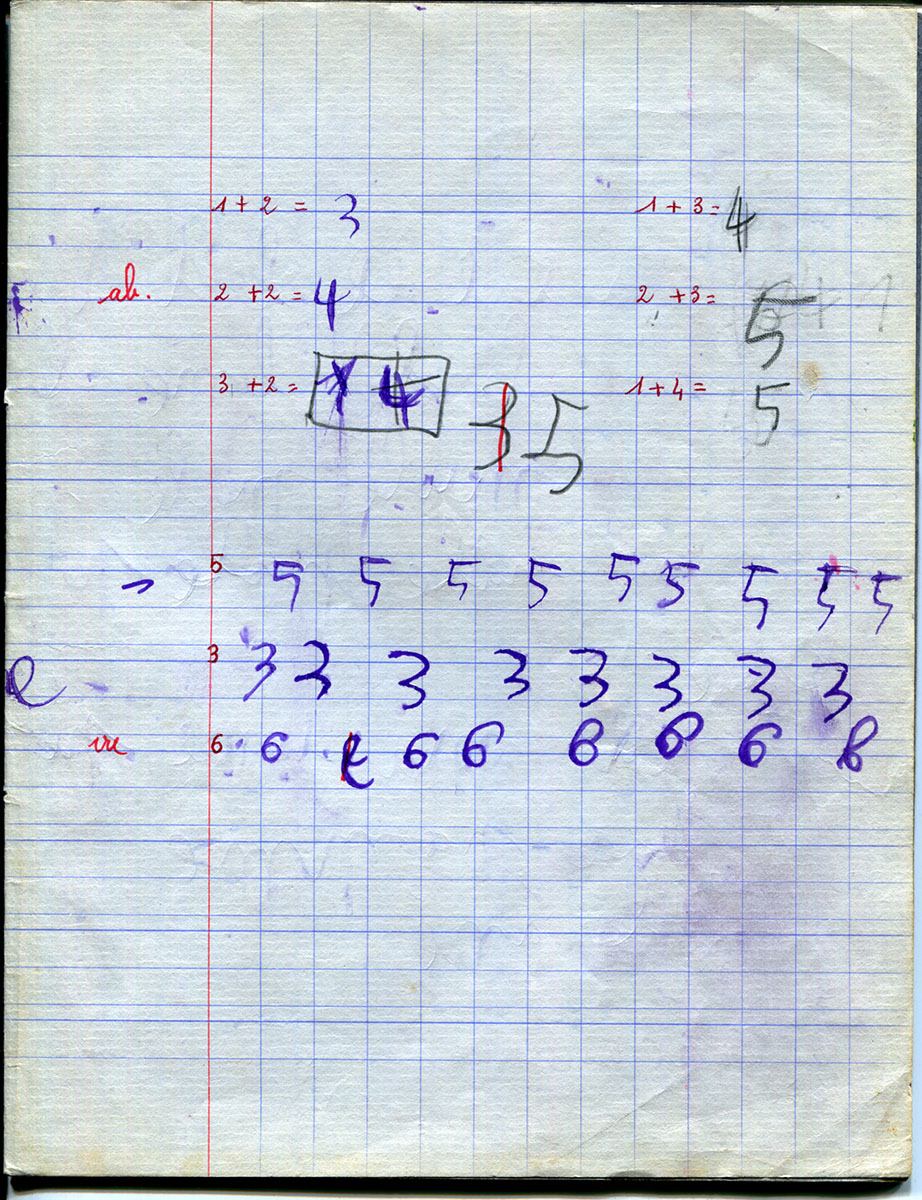 1 + 2 = 3 1 + 3 = 4
ab. 2 + 2 = 4 2 + 3 = 5
3 + 2 = 4 3 5 1 + 4 = 5
5 5 5 5 5 5 5 5 5 5
3 3 3 3 3 3 3 3 3
vu 6 6 6 6 6 6 6 6